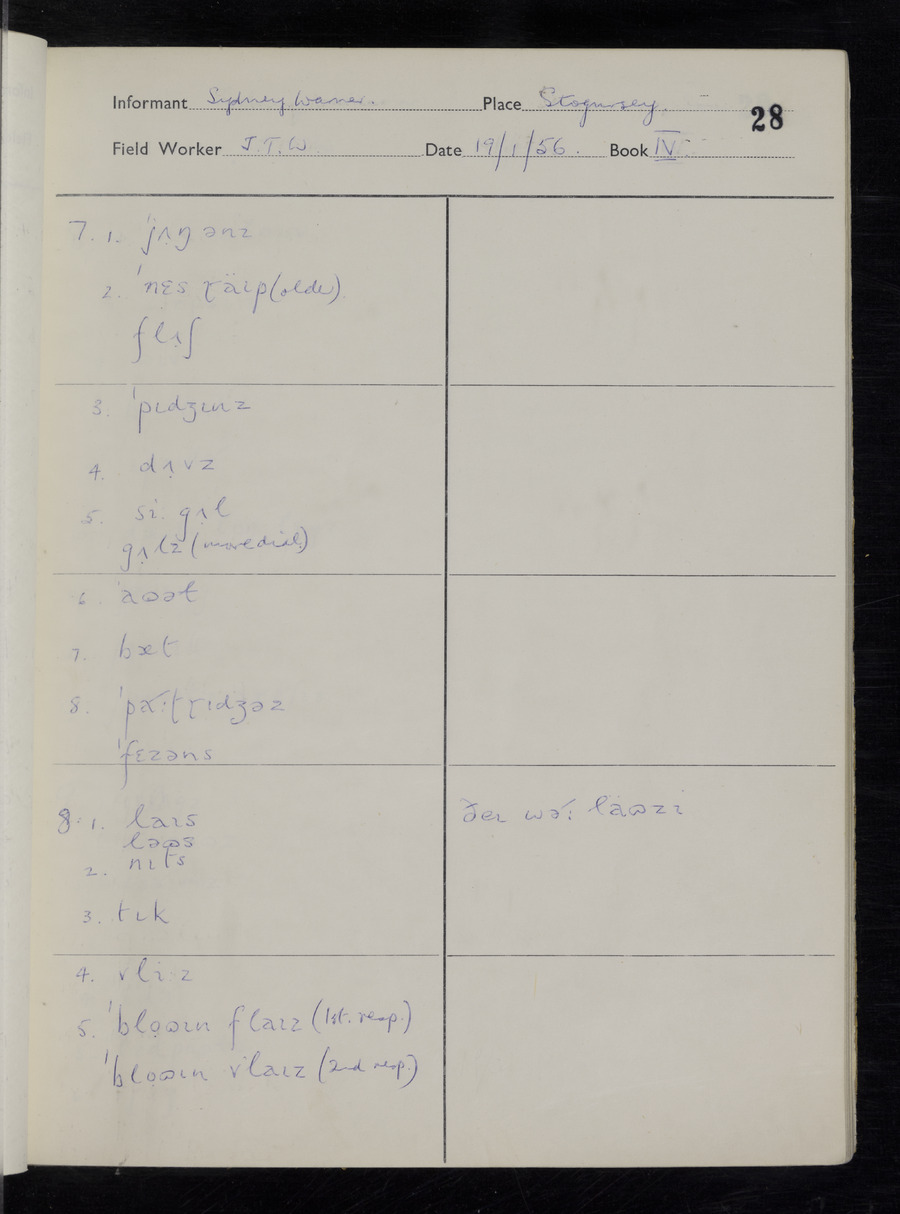 Informant Sydney Warner. Place Stogursey.
28
Field Worker J.T.W. Date 19/1/56. Book IV
7. 1. ˈjʌŋənz
2. ˈnɛs ɽäɪp (older)
flʌʃ
3. ˈpɪdʒɪnz
4. dʌvz
5. siː gʌl
gʌlz (more dial.)
6. aɷət
7. bæt
8. ˈpɑ˞ːtɽɪdʒəz
ˈfɛzəns
8. 1. laɪs
ləɷs
ðeɪ wə˞ː läɷzi
2. nɪts
3. tɪk
4. vliːz
5. ˈbloɷɪn flaɪz (1st. resp.)
ˈbloɷɪn vlaɪz (2nd resp.)